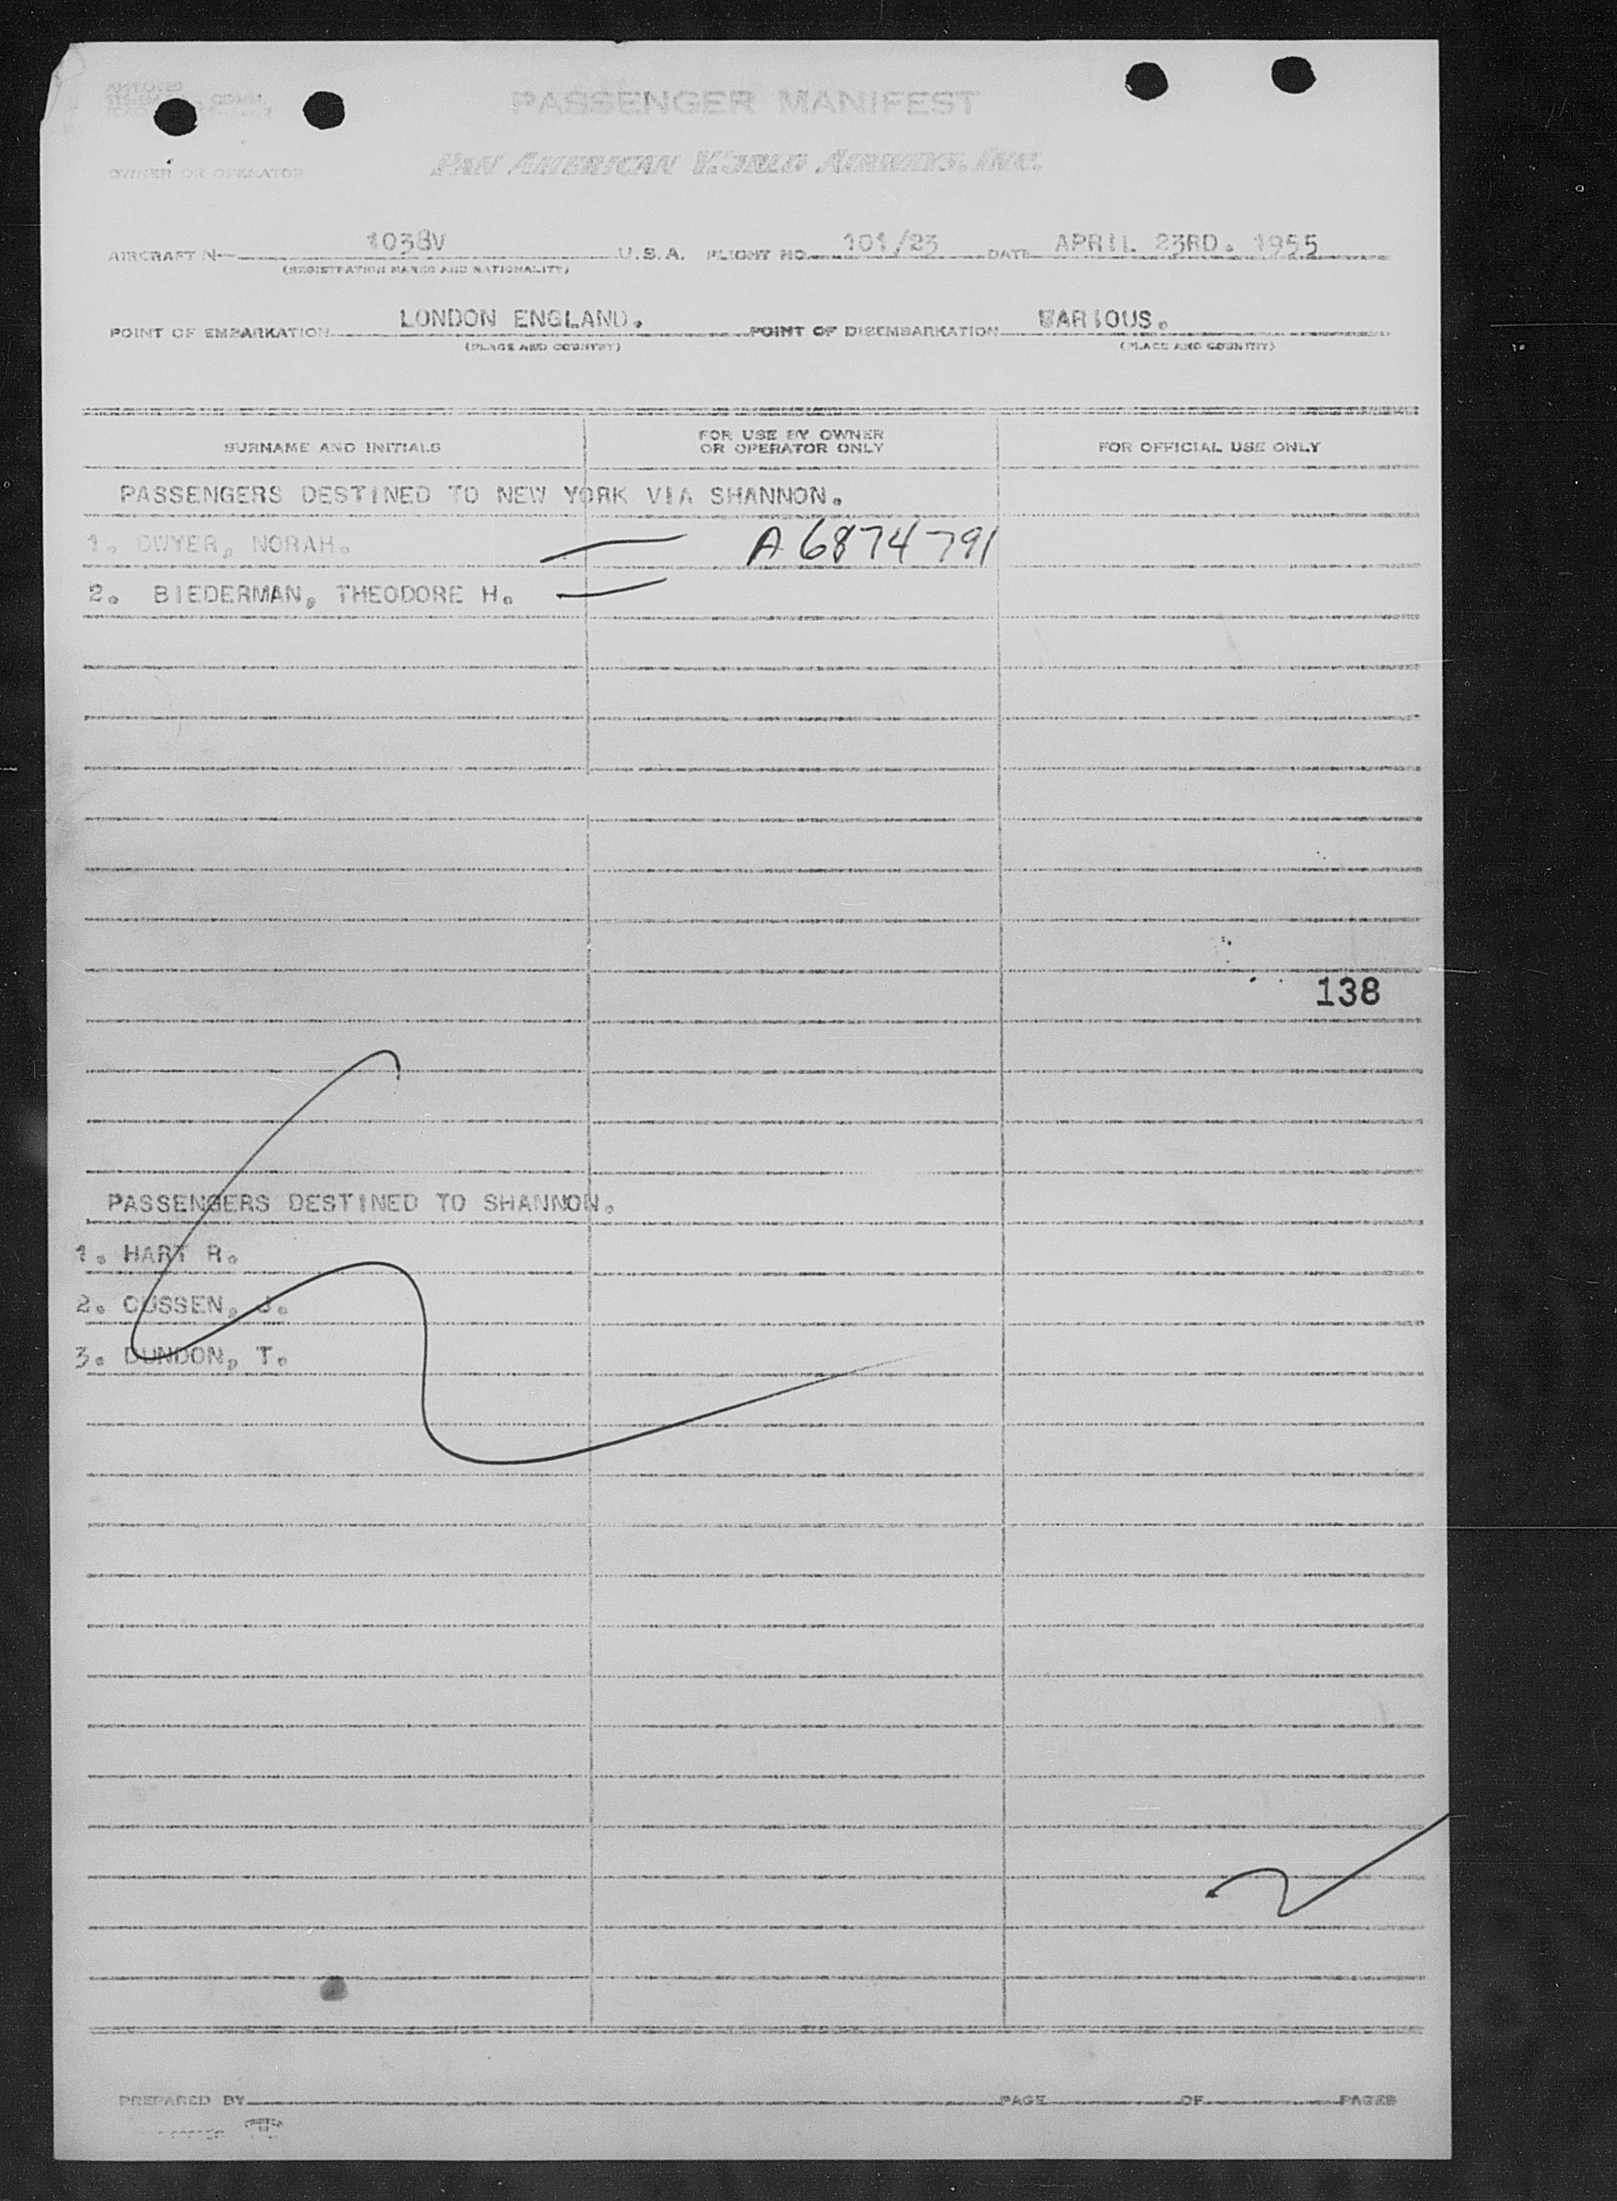 PASSENGER MANIFEST
OWNER OR OPERATOR PAN AMERICAN WORLD AIRWAYS, INC.
AIRCRAFT N- 1038V U.S.A. FLIGHT NO. 101/23 DATE APRIL 23RD. 1955
(REGISTRATION MARKS AND NATIONALITY)
POINT OF EMBARKATION LONDON ENGLAND. POINT OF DISEMBARKATION VARIOUS.
(PLACE AND COUNTRY) (PLACE AND COUNTRY)
SURNAME AND INITIALS FOR USE BY OWNER OR OPERATOR ONLY FOR OFFICIAL USE ONLY
PASSENGERS DESTINED TO NEW YORK VIA SHANNON.
1. DWYER, NORAH. A6874791
2. BIEDERMAN, THEODORE H.
138
PASSENGERS DESTINED TO SHANNON.
1. HART R.
2. CUSSEN, J.
3. DUNDON, T.
PREPARED BY PAGE OF PAGES